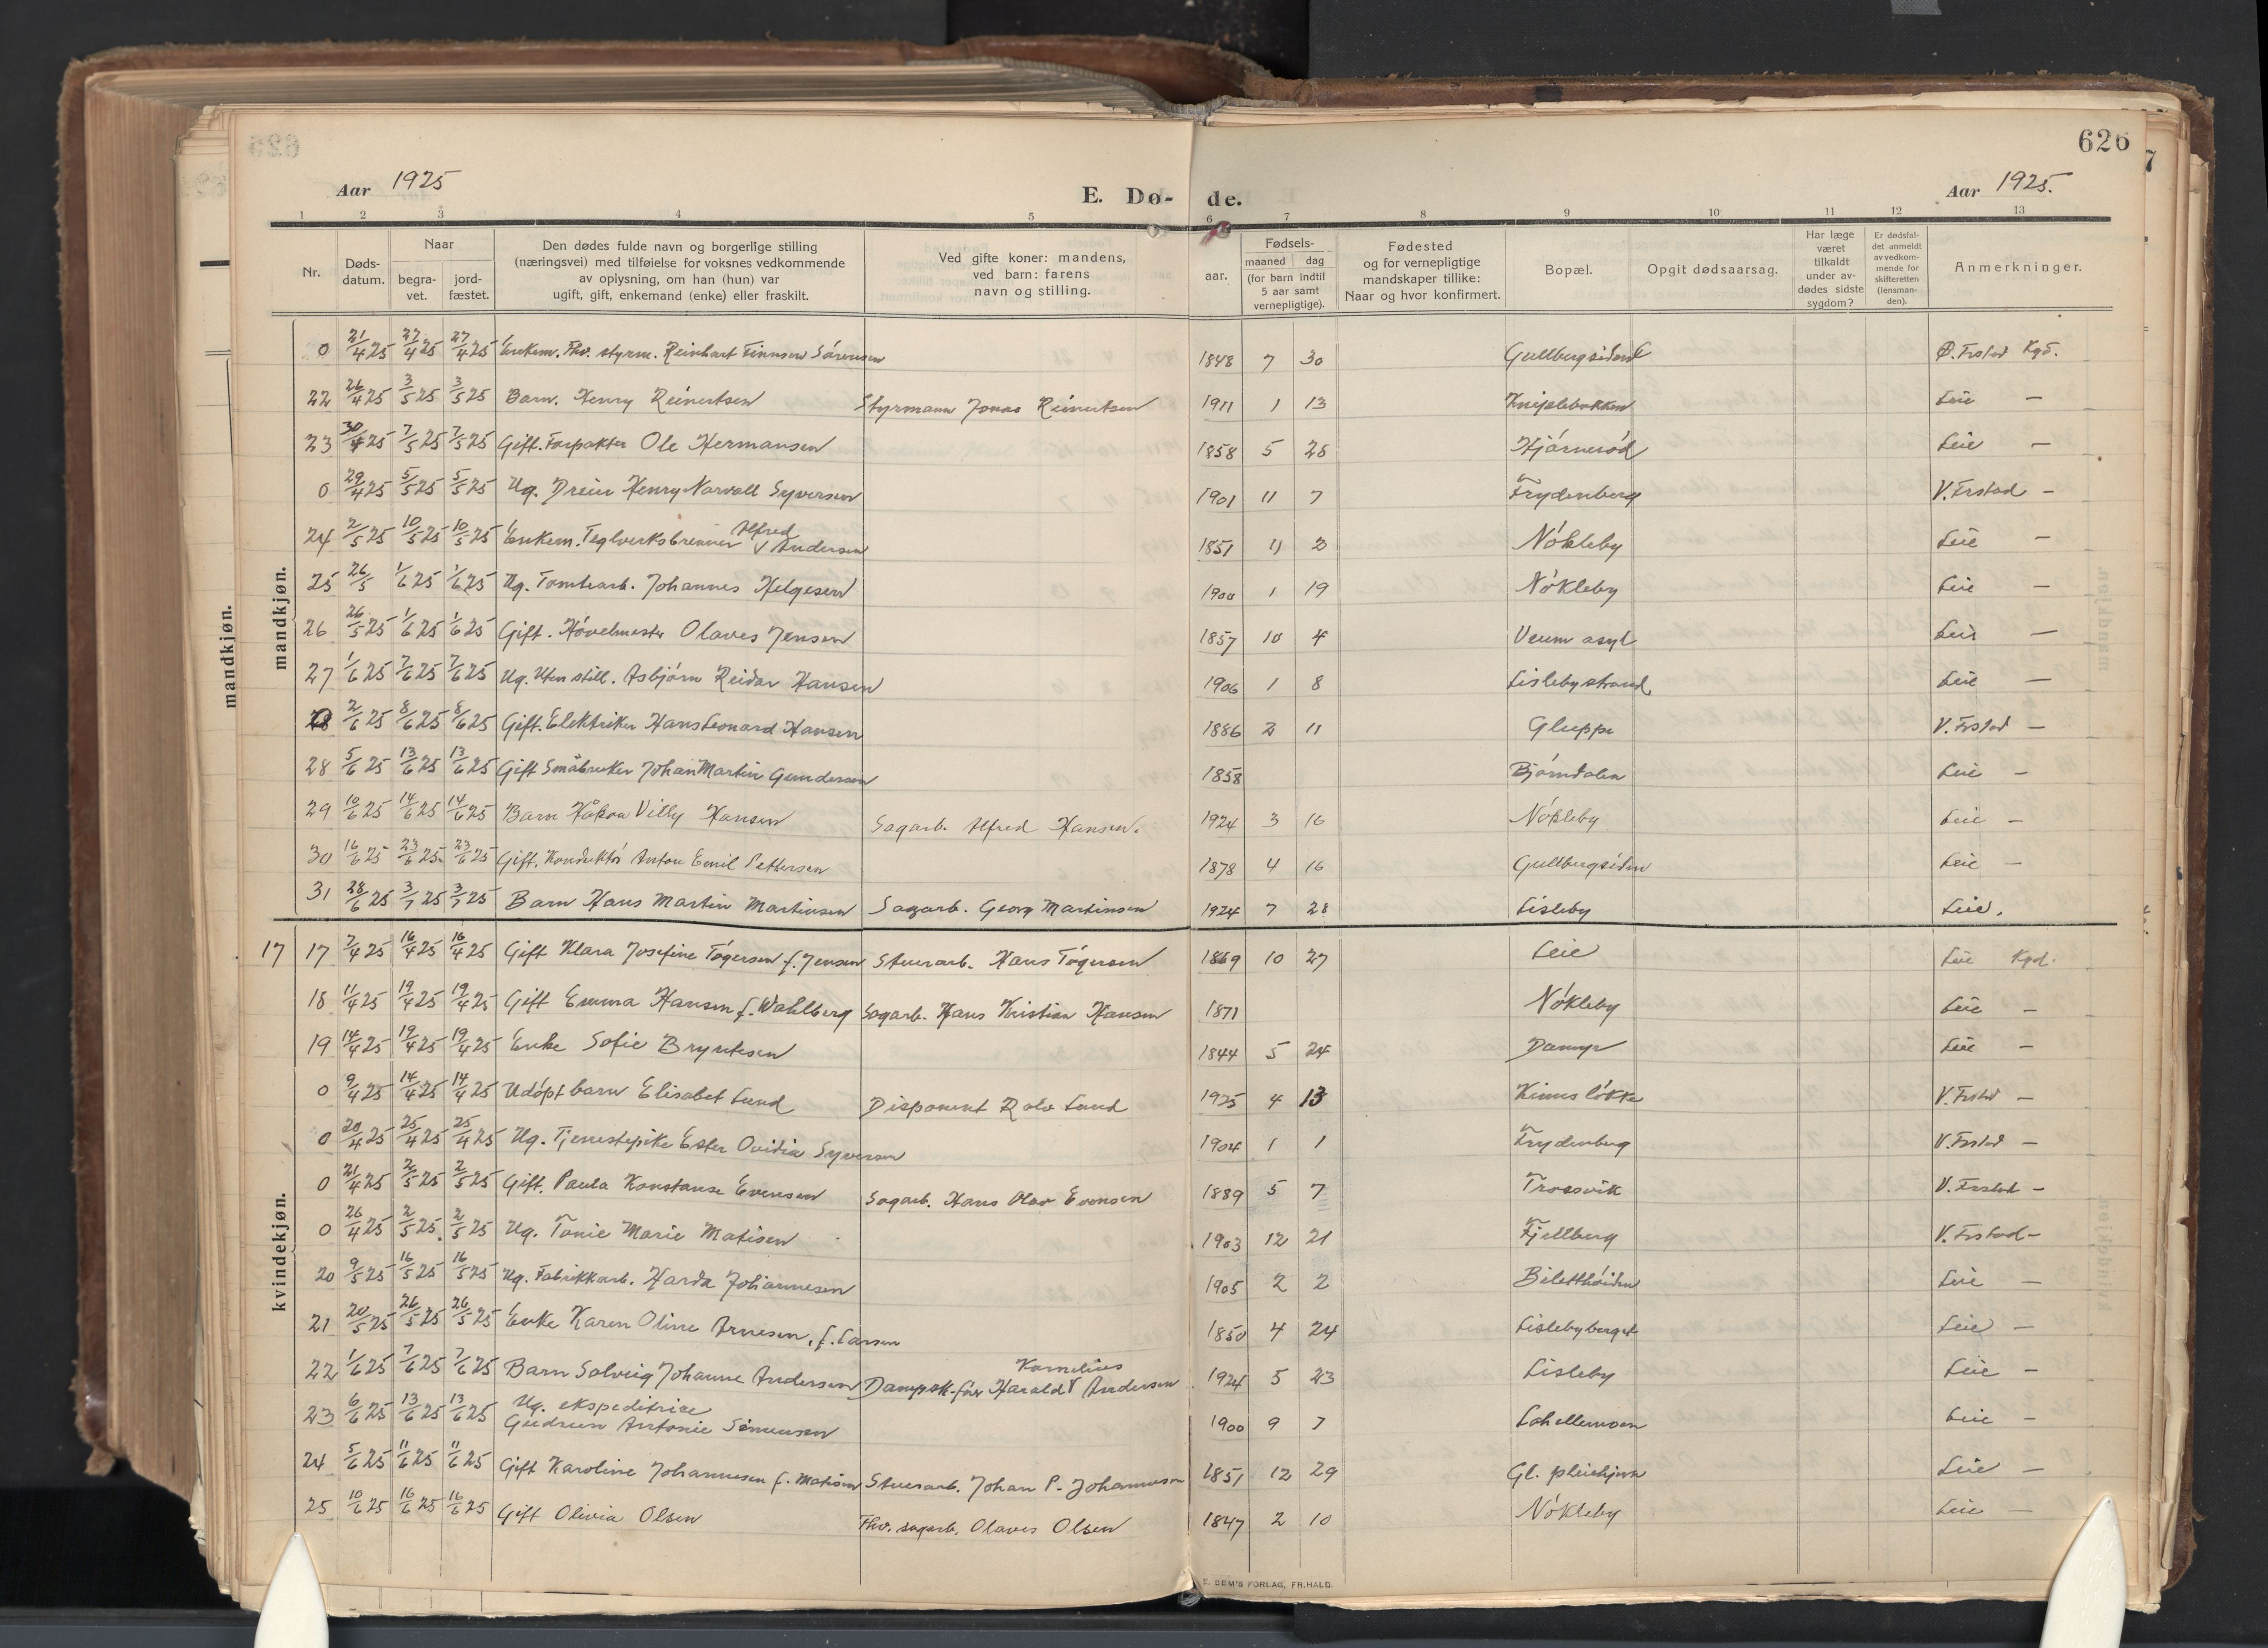 626
Aar 1925 E. Dø- de. Aar 1925.
1 2 3 4 5 6 7 8 9 10 11 12 13
Nr. Døds-datum. Naar begra-vet. jord-fæstet. Den dødes fulde navn og borgerlige stilling (næringsvei) med tilføielse for voksnes vedkommende av oplysning, om han (hun) var ugift, gift, enkemand (enke) eller fraskilt. Ved gifte koner: mandens, ved barn: farens navn og stilling. aar. Fødsels- maaned dag (for barn indtil 5 aar samt vernepligtige). Fødested og for vernepligtige mandskaper tillike: Naar og hvor konfirmert. Bopæl. Opgit dødsaarsag. Har læge været tilkaldt under av-dødes sidste sygdom? Er dødsfal-det anmeldt av vedkom-mende for skifteretten (lensman-den). Anmerkninger.
mandkjøn.
mandkjøn.
0 21/4 25 27/4 25 27/4 25 Enkem. Fhv. styrm. Reinhart Finnsen Sörensen 1848 7 30 Gullbergsiden Ø. Frstad Kgd.
22 26/4 25 3/5 25 3/5 25 Barn. Henry Reinertsen Styrmann Jonas Reinertsen 1911 1 13 Kniplebakken Leie —
23 30/4 25 7/5 25 7/5 25 Gift. Forpakter Ole Hermansen 1858 5 25 Hjørnerød Leie —
0 29/4 25 5/5 25 5/5 25 Ug. Dreier Henry Norvall Syversen 1901 11 7 Frydenberg V. Frstad —
24 2/5 25 10/5 25 10/5 25 Enkem. Teglverksbrenner Alfred Andersen 1851 11 3 Nókleby Leie —
25 26/5 1/6 25 1/6 25 Ug. Tomtearb. Johannes Helgesen 1900 1 19 Nókleby Leie —
26 26/5 25 1/6 25 1/6 25 Gift. Hóvelmester Olaves Jensen 1857 10 4 Veum asyl Leie —
27 1/6 25 7/6 25 7/6 25 Ug. Uten still. Asbjórn Reidar Hansen 1906 1 8 Lislebystrand Leie —
0 2/6 25 8/6 25 8/6 25 Gift. Elektriker Hans Leonard Hansen 1886 2 11 Gluppe V. Frstad —
28 5/6 25 13/6 25 13/6 25 Gift Småbruker Johan Martin Gundersen 1858 Bjórndalen Leie —
29 10/6 25 14/6 25 14/6 25 Barn Håkon Villy Hansen Sagarb. Alfred Hansen. 1924 3 16 Nókleby Leie —
30 16/6 25 23/6 25 23/6 25 Gift. Konduktór Anton Emil Pettersen 1878 4 16 Gullbergsiden Leie —
31 28/6 25 3/7 25 3/7 25 Barn Hans Martin Martinsen Sagarb. Georg Martinsen 1924 7 28 Lisleby Leie.
kvindekjøn.
17 17 7/4 25 16/4 25 16/4 25 Gift Klara Josefine Tógersen f. Jensen Stuerarb. Hans Tógersen 1869 10 27 Leie Leie Kgd.
18 11/4 25 19/4 25 19/4 25 Gift Emma Hansen f. Wahlberg Sagarb. Hans Kristian Hansen 1871 Nókleby Leie —
19 14/4 25 19/4 25 19/4 25 Enke Sofie Bryntesen 1844 5 24 Damyr Leie —
0 9/4 25 14/4 25 14/4 25 Udópt barn Elisabet Lund Disponent Rolv Lund 1925 4 13 Kinns lókke V. Frstad —
0 20/4 25 25/4 25 25/4 25 Ug. Tjenestepike Ester Ovidia Syversen 1904 1 1 Frydenberg V. Frstad —
0 21/4 25 2/5 25 2/5 25 Gift. Paula Konstanse Evensen Sagarb. Hans Olav Evensen 1889 5 7 Trosvik V. Frstad —
0 26/4 25 2/5 25 2/5 25 Ug. Tonie Marie Matisen 1903 12 21 Fjellberg V. Frstad —
20 9/5 25 16/5 25 16/5 25 Ug. Fabrikkarb. Harda Johannesen 1905 2 2 Biletthóiden Leie —
21 20/5 25 26/5 25 26/5 25 Enke Karen Oline Arnesen, f. Larsen 1850 4 24 Lislebyberget Leie —
22 1/6 25 7/6 25 7/6 25 Barn Solveig Johanne Andersen Dampsk.-fører Harald Kornelius Andersen 1924 5 23 Lisleby Leie —
23 6/6 25 13/6 25 13/6 25 Ug. ekspeditrice Gudrun Antonie Simensen 1900 9 7 Lahellemoen Leie —
24 5/6 25 11/6 25 11/6 25 Gift Karoline Johannesen f. Matisen Stuerarb. Johan P. Johannesen 1851 12 29 Gl. pleiehjem Leie —
25 10/6 25 16/6 25 16/6 25 Gift Olivia Olsen Fhv. sagarb. Olaves Olsen 1847 2 10 Nókleby Leie —
E. SEM'S FORLAG, FR.HALD.